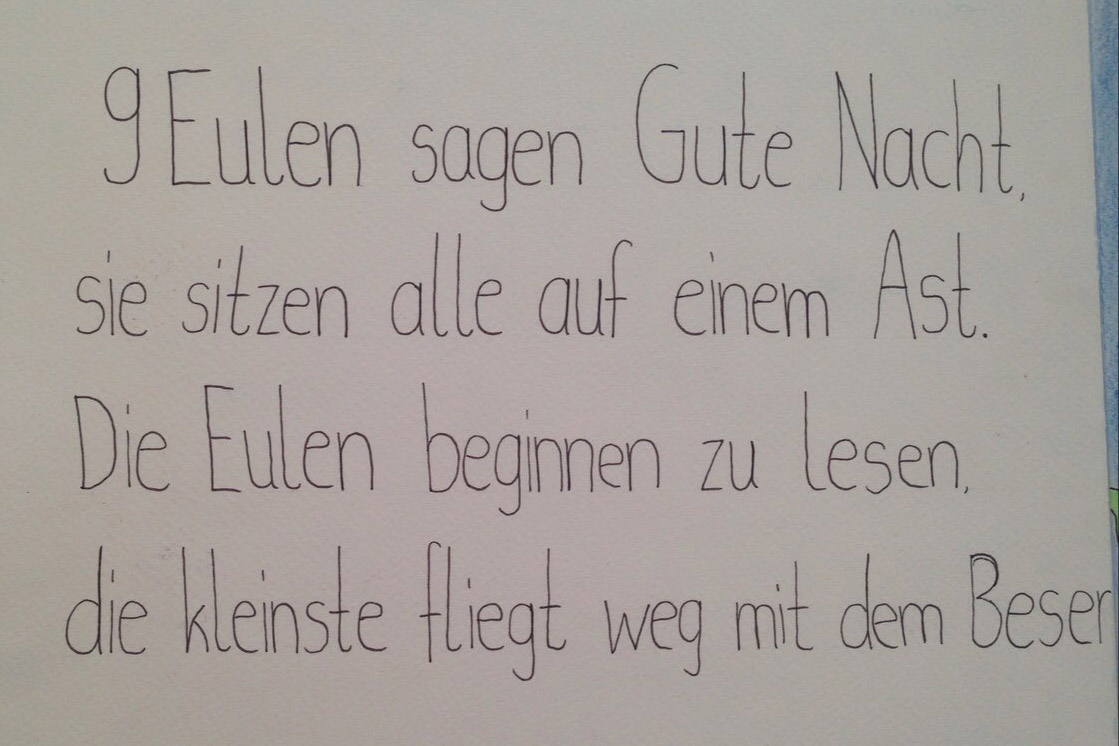 9 Eulen sagen Gute Nacht,
sie sitzen alle auf einem Ast.
Die Eulen beginnen zu lesen,
die kleinste fliegt weg mit dem Besen